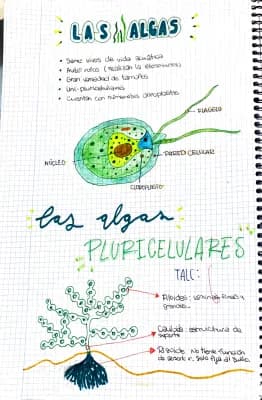 LAS ALGAS
• Seres vivos de vida acuática
• Autótrofos (realizan la fotosíntesis)
• Gran variedad de tamaños
• Uni-pluricelulares
• Cuentan con numerosos cloroplastos
FLAGELO
PARED CELULAR
NÚCLEO
CLOROPLASTO
las algas
PLURICELULARES
TALO:
Filoides:
Cauloide: estructura de
soporte
Rizoide: No tiene función
de absorber. Solo fija al suelo.